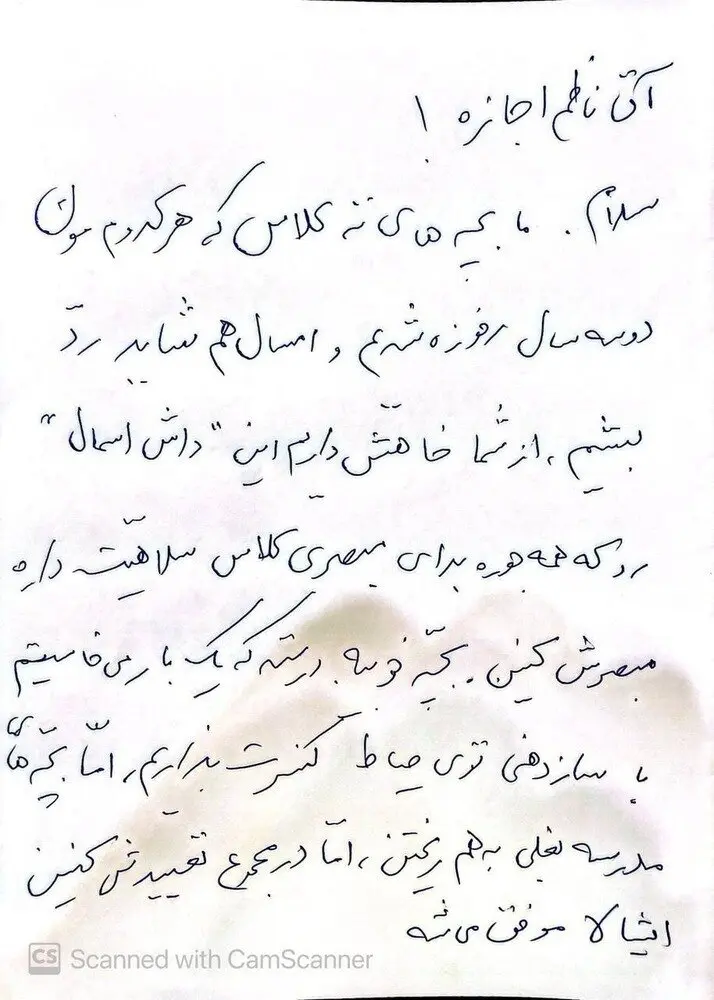 آقای ناظم اجازه !
سلام . ما بچه های ته کلاس که هر کدوم
دو سه سال رفوزه شدیم و امسال هم شاید ردّ
بشیم ، از شما خاهش داریم این "داش اسمال"
رو که همه جوره برای مبصری کلاس سلاهیّت داره
مبصرش کنین . بچّه خوبیه . درسته که یک بار می خاسیتم
با ساز دهنی توی حیاط کنسرت بذاریم ، امّا بچّه های
مدرسه بغلی به هم ریختن ، امّا در مجموع تعییدش کنین
ایشالا موفق می شه
CS Scanned with CamScanner